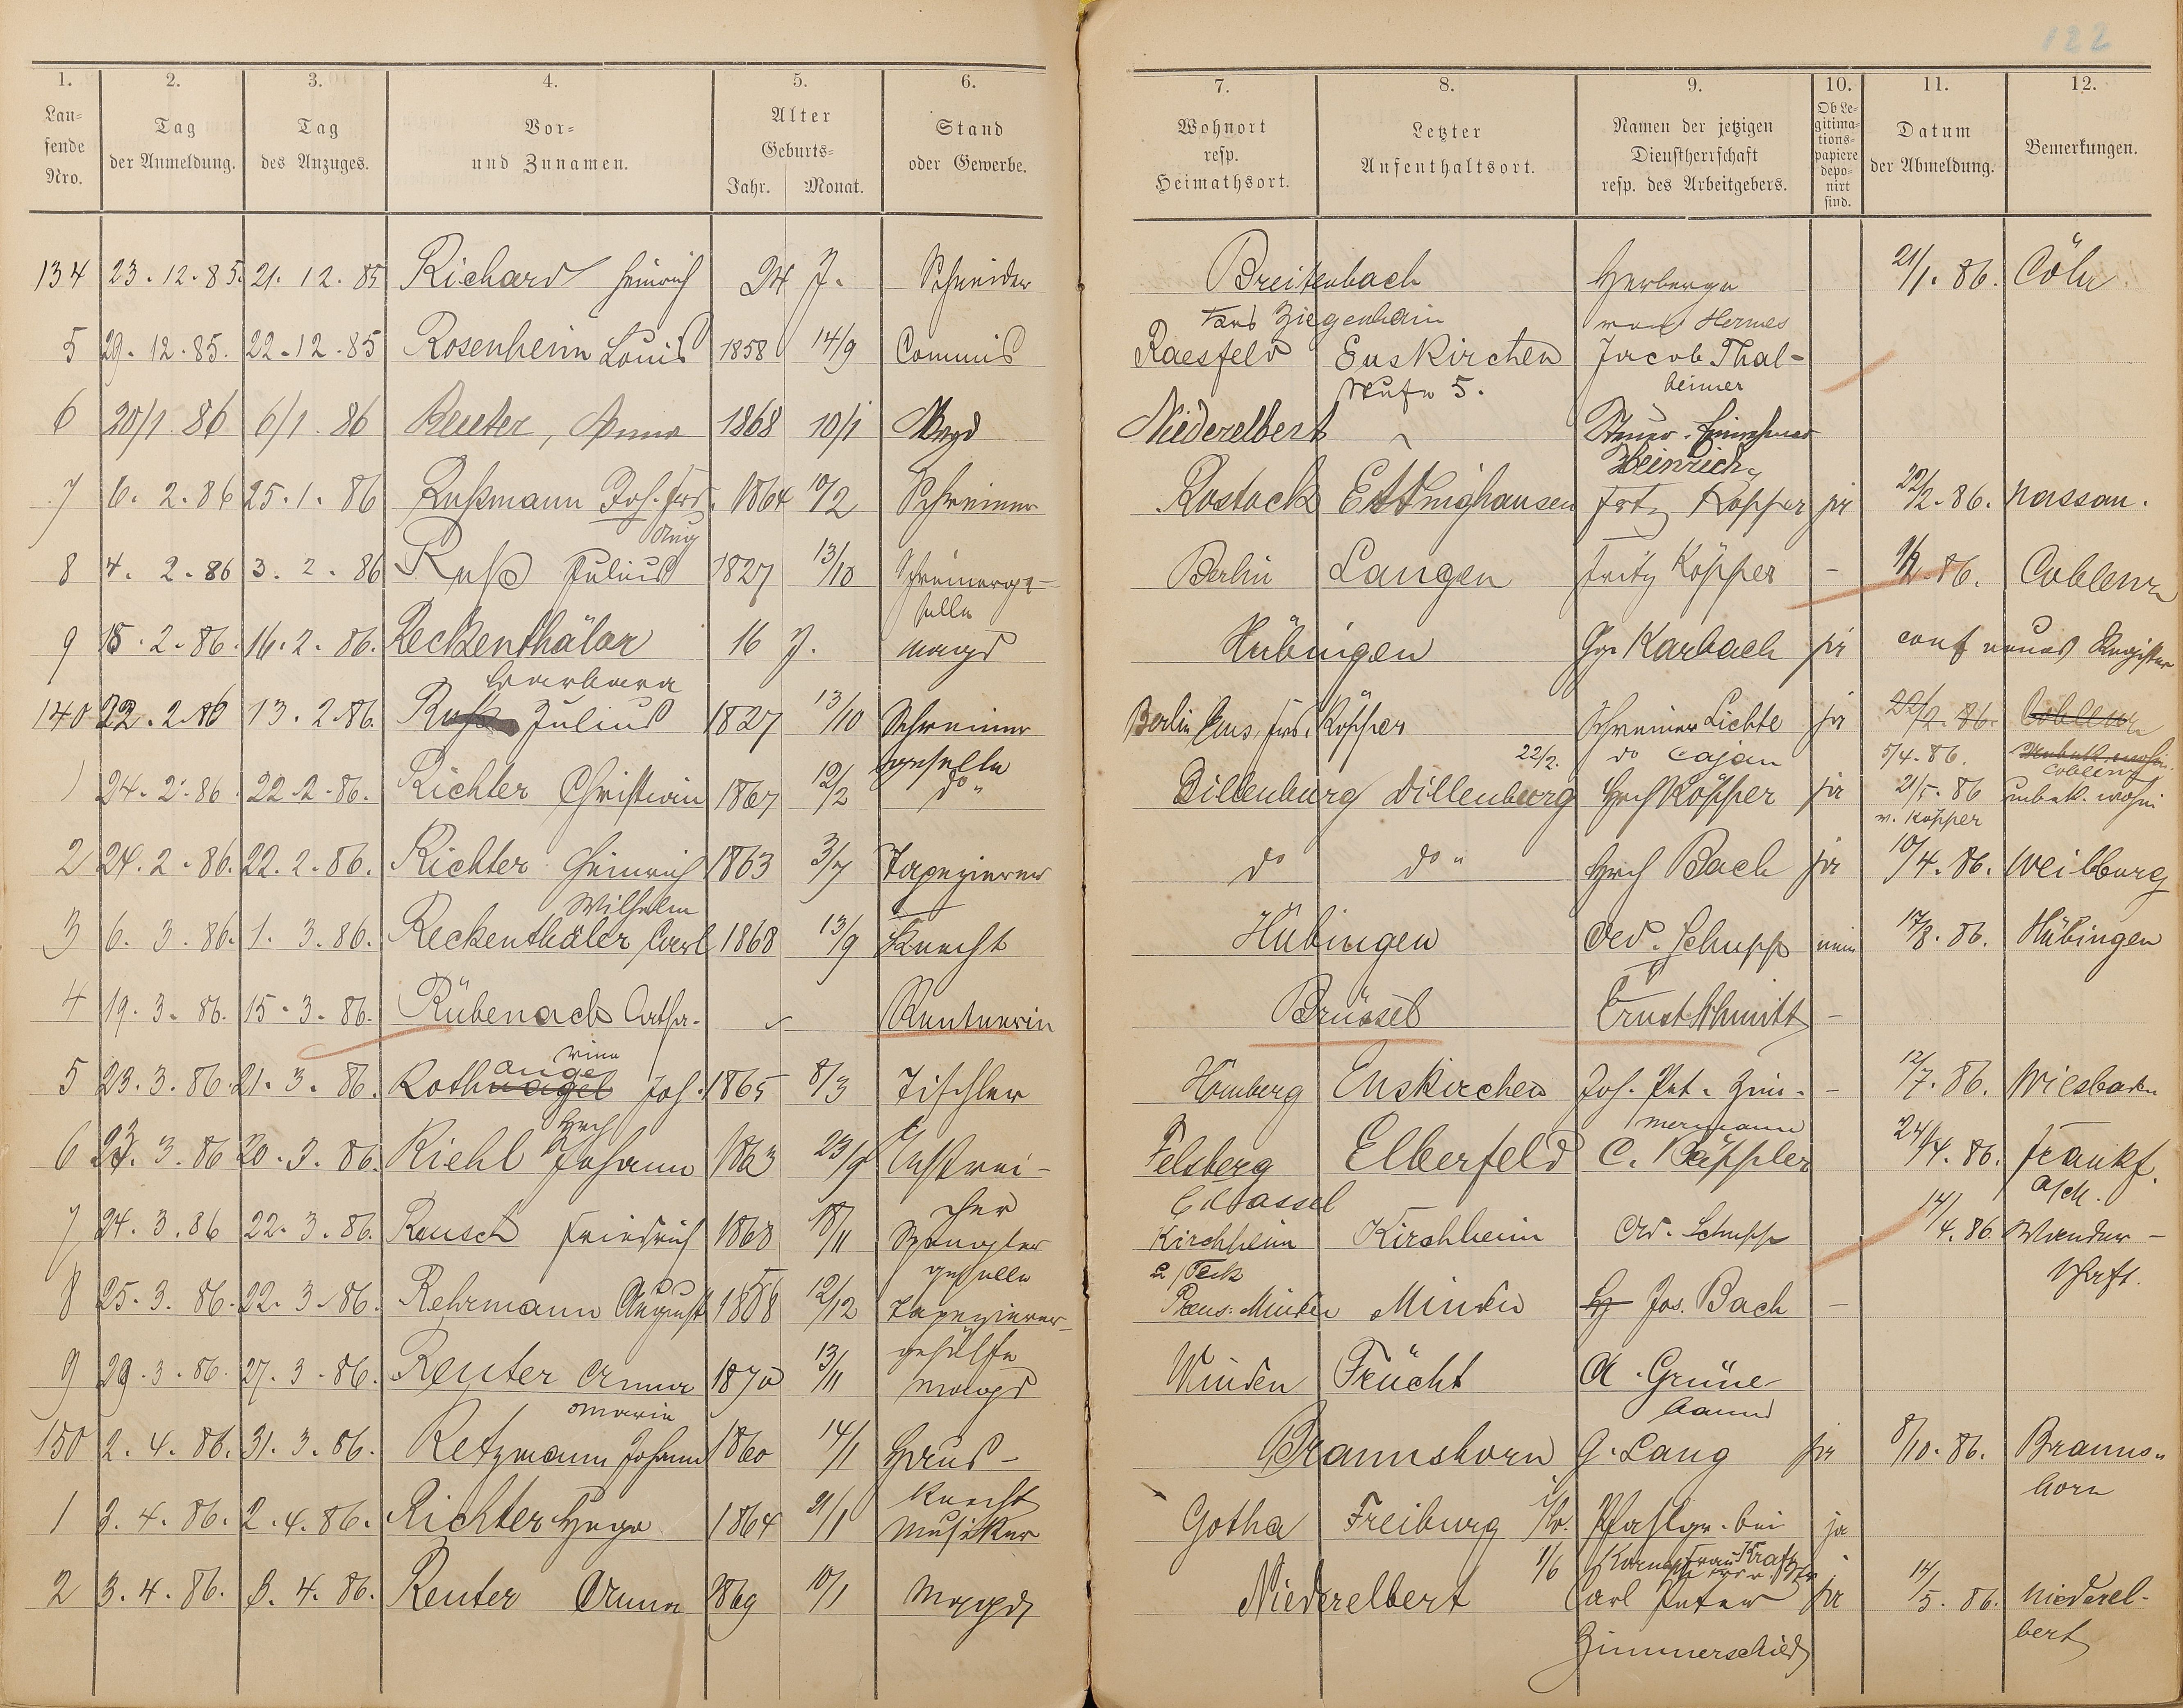 122
1. 2. 3. 4. 5. 6. 7. 8. 9. 10. 11. 12.
Lau-
fende
Nro.
Tag
der Anmeldung.
Tag
des Anzuges.
Vor-
und Zunamen.
Alter
Geburts-
Jahr. Monat.
Stand
oder Gewerbe.
Wohnort
resp.
Heimathsort.
Letzter
Aufenthaltsort.
Namen der jetzigen
Dienstherrschaft
resp. des Arbeitgebers.
Ob Le-
gitima-
tions-
papiere
depo-
nirt
sind.
Datum
der Abmeldung.
Bemerkungen.
134 23.12.85. 21.12.85 Richard Heinrich 24 J. Schneider Breitenbach Herberge 21/1.86. Cöln
Ziegenhain von Hermes
5 29.12.85. 22.12.85 Rosenheim Louis 1858 14/9 Commis Raesfeld Euskirchen Jacob Thal-
Stufe 5. heimer
6 20/1.86 6/1.86 Reuter, Anna 1868 10/1 Magd Niederelbert Steuer-Einnehmer
Heinrich
7 6.2.86 25.1.86 Rußmann Joh. Frd. 1864 10/2 Schreiner Rostock Ettinghausen FritzKöpper ja 22/2.86. Nassau.
Aug
8 4.2.86 3.2.86 Ruß Julius 1827 13/10 Schreinerge- Berlin Langen Fritz Köpper - 9/2.86. Coblenz
selle
9 18.2.86. 16.2.86. Reckenthäler 16 J. Magd Hübingen Karbach ja conf neues Register
Barbara
140 22.2.86 13.2.86. Ruß Julius 1827 13/10 Schreiner Berlin Ems, Frd. Köpper Schreiner Lichte ja 22/2.86. Coblenz
geselle 22/2. do Cajan 5/4.86. Coblenz
1 24.2.86 22.2.86. Richter Christian 1867 12/2 do " Dillenburg Dillenburg Hrch Köpper ja 21/5.86 unbek. wohin
v. Köpper
2 24.2.86. 22.2.86. Richter Heinrich 1863 3/7 Tapezierer do do " Hrch Bach ja 10/4.86. Weilburg
Wilhelm
3 6.3.86. 1.3.86. Reckenthäler Carl 1868 13/9 Knecht Hübingen Ad. Schupp nein 17/8.86. Hübingen
4 19.3.86. 15.3.86. Rübenach Catha- Rentnerin Brüssel Ernst Schmitt -
rine
ange
5 23.3.86. 21.3.86. Rothnagel Joh. 1865 8/3 Tischler Homberg Euskirchen Joh. Pet. Zim- - 12/7.86. Wiesbaden
Hrch mermann
6 23.3.86 20.3.86. Riehl Johann 1863 23/9 Anstrei- Felsberg Elberfeld C. Käppler 24/4.86. Frankf.
cher Cassel a/M.
7 24.3.86 22.3.86. Rausch Friedrich 1868 18/11 Spengler Kirchheim Kirchheim Ad. Schupp 14/4.86 Wander-
geselle a/Teck schaft.
8 25.3.86. 22.3.86. Rehrmann August 1868 12/12 Tapezierer- Preus. Minden Minden Jos. Bach -
gehülfe
9 29.3.86. 27.3.86. Reuter Anna 1870 13/11 Magd Winden Frücht A. Grüne-
Maria baum
150 2.4.86. 31.3.86. Retzmann Johann 1860 14/1 Haus- Braunshorn G. Lang ja 8/10.86. Brauns-
knecht horn
1 3.4.86. 2.4.86. Richter Hugo 1864 21/1 Musiker Gotha Freiburg i/Br. bei ja
1/6 Frau Kraft
2 3.4.86. 3.4.86. Reuter Anna 1869 10/1 Magd Niederelbert Carl Peter ja 14/5.86. Niederel-
Zimmerschied bert